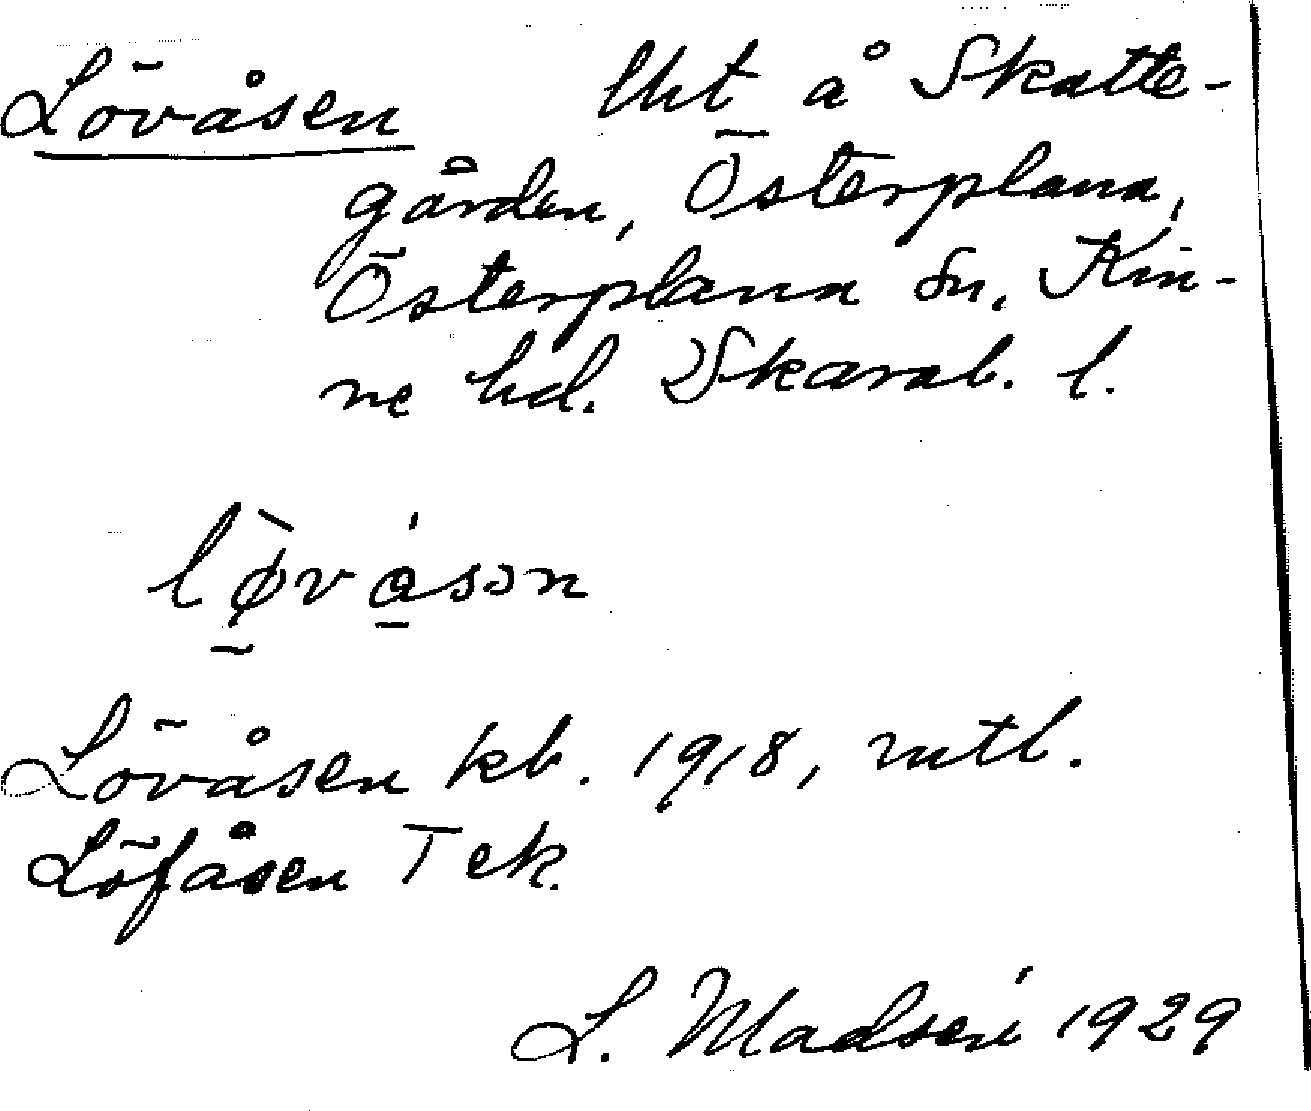 Lövåsen lht å Skatte-
gården, Österplana,
Österplana sn, Kin-
ne hd. Skarab. l.
lø̀vá̱sən
Lövåsen kb. 1918, mtl.
Löfåsen Tek.
L. Madsén 1929